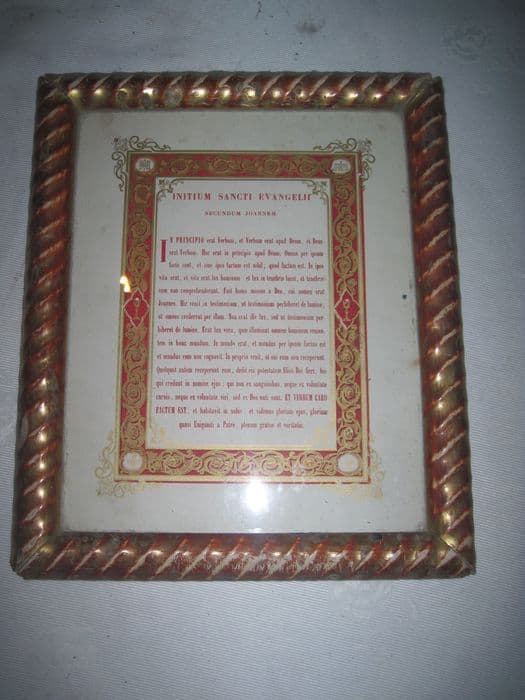 INITIUM SANCTI EVANGELII
SECUNDUM JOANNEM.
IN PRINCIPIO erat Verbum, et Verbum erat apud Deum, et Deus
erat Verbum. Hoc erat in principio apud Deum. Omnia per ipsum
facta sunt, et sine ipso factum est nihil, quod factum est. In ipso
vita erat, et vita erat lux hominum et lux in tenebris lucet, et tenebræ
eam non comprehenderunt. Fuit homo missus a Deo, cui nomen erat
Joannes. Hic venit in testimonium, ut testimonium perhiberet de lumine,
ut omnes crederent per illum. Non erat ille lux, sed ut testimonium per-
hiberet de lumine. Erat lux vera, quæ illuminat omnem hominem venien-
tem in hunc mundum. In mundo erat, et mundus per ipsum factus est
et mundus eum non cognovit. In propria venit, et sui eum non receperunt.
Quotquot autem receperunt eum, dedit eis potestatem filios Dei fieri, his
qui credunt in nomine ejus : qui non ex sanguinibus, neque ex voluntate
carnis, neque ex voluntate viri, sed ex Deo nati sunt. ET VERBUM CARO
FACTUM EST, et habitavit in nobis : et vidimus gloriam ejus, gloriam
quasi Unigeniti a Patre, plenum gratiæ et veritatis.